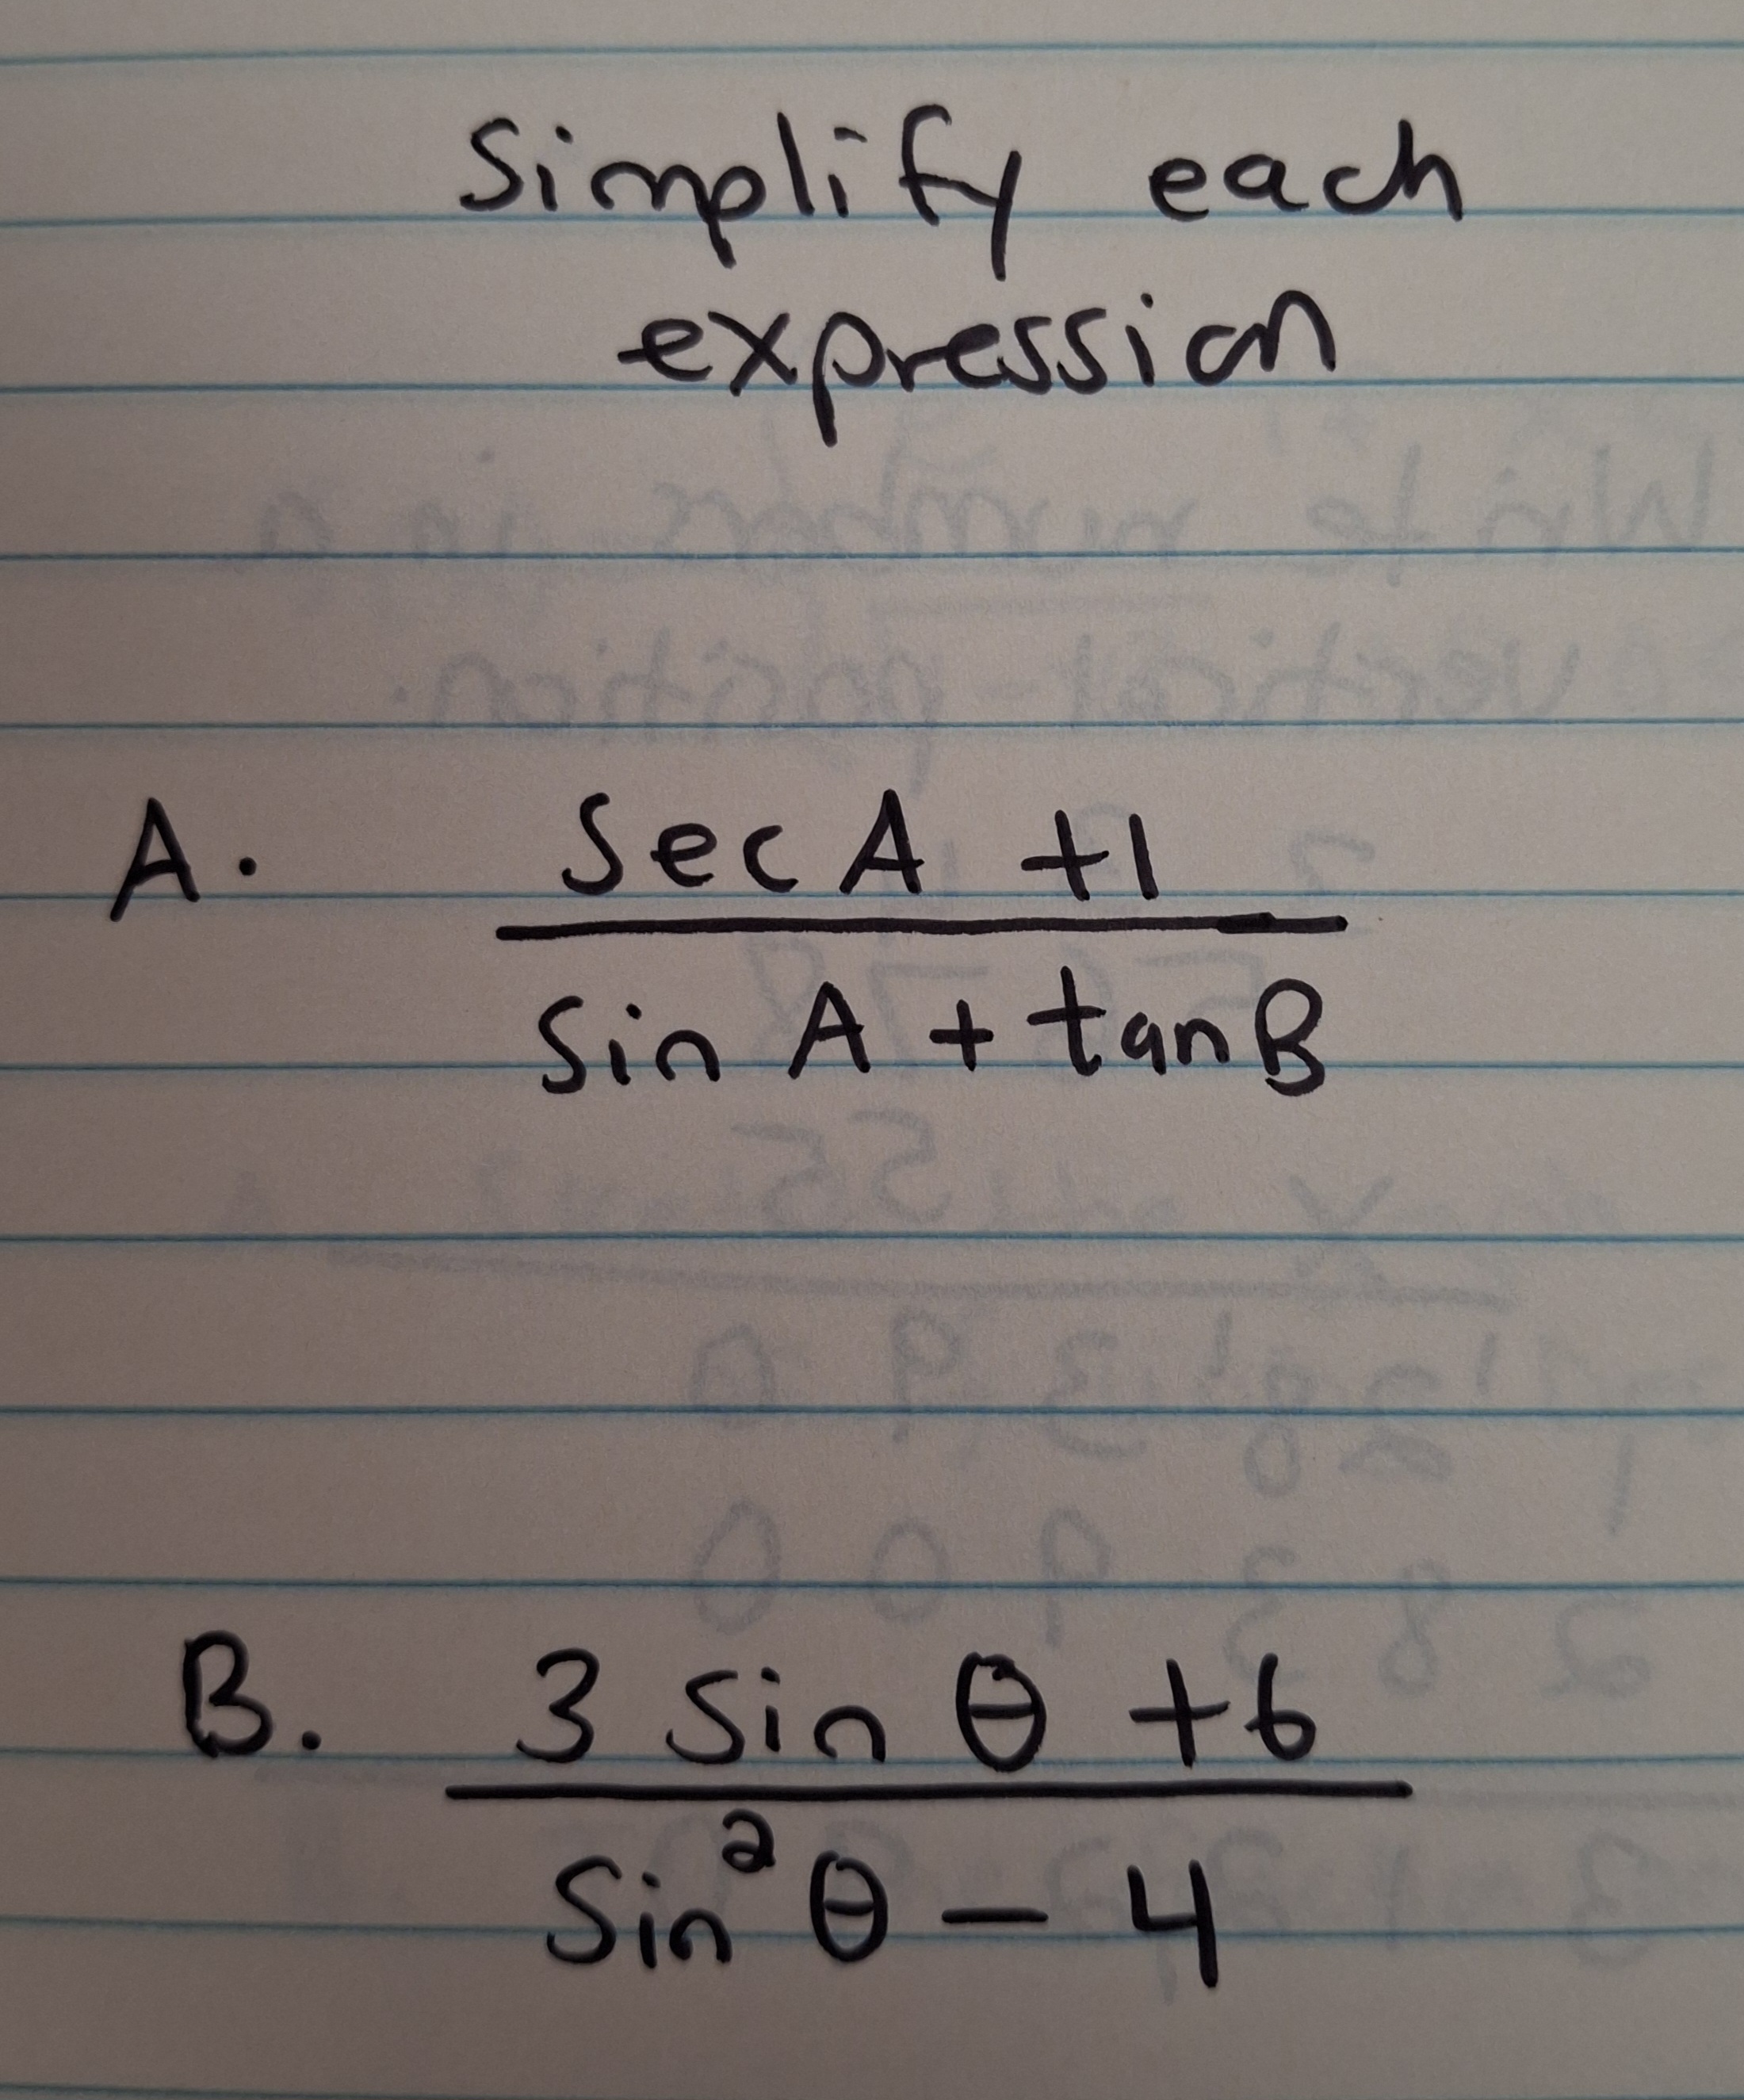 Simplify each
expression
A. Sec A +1
Sin A + tan B
B. 3 Sin θ +6
Sin² θ - 4